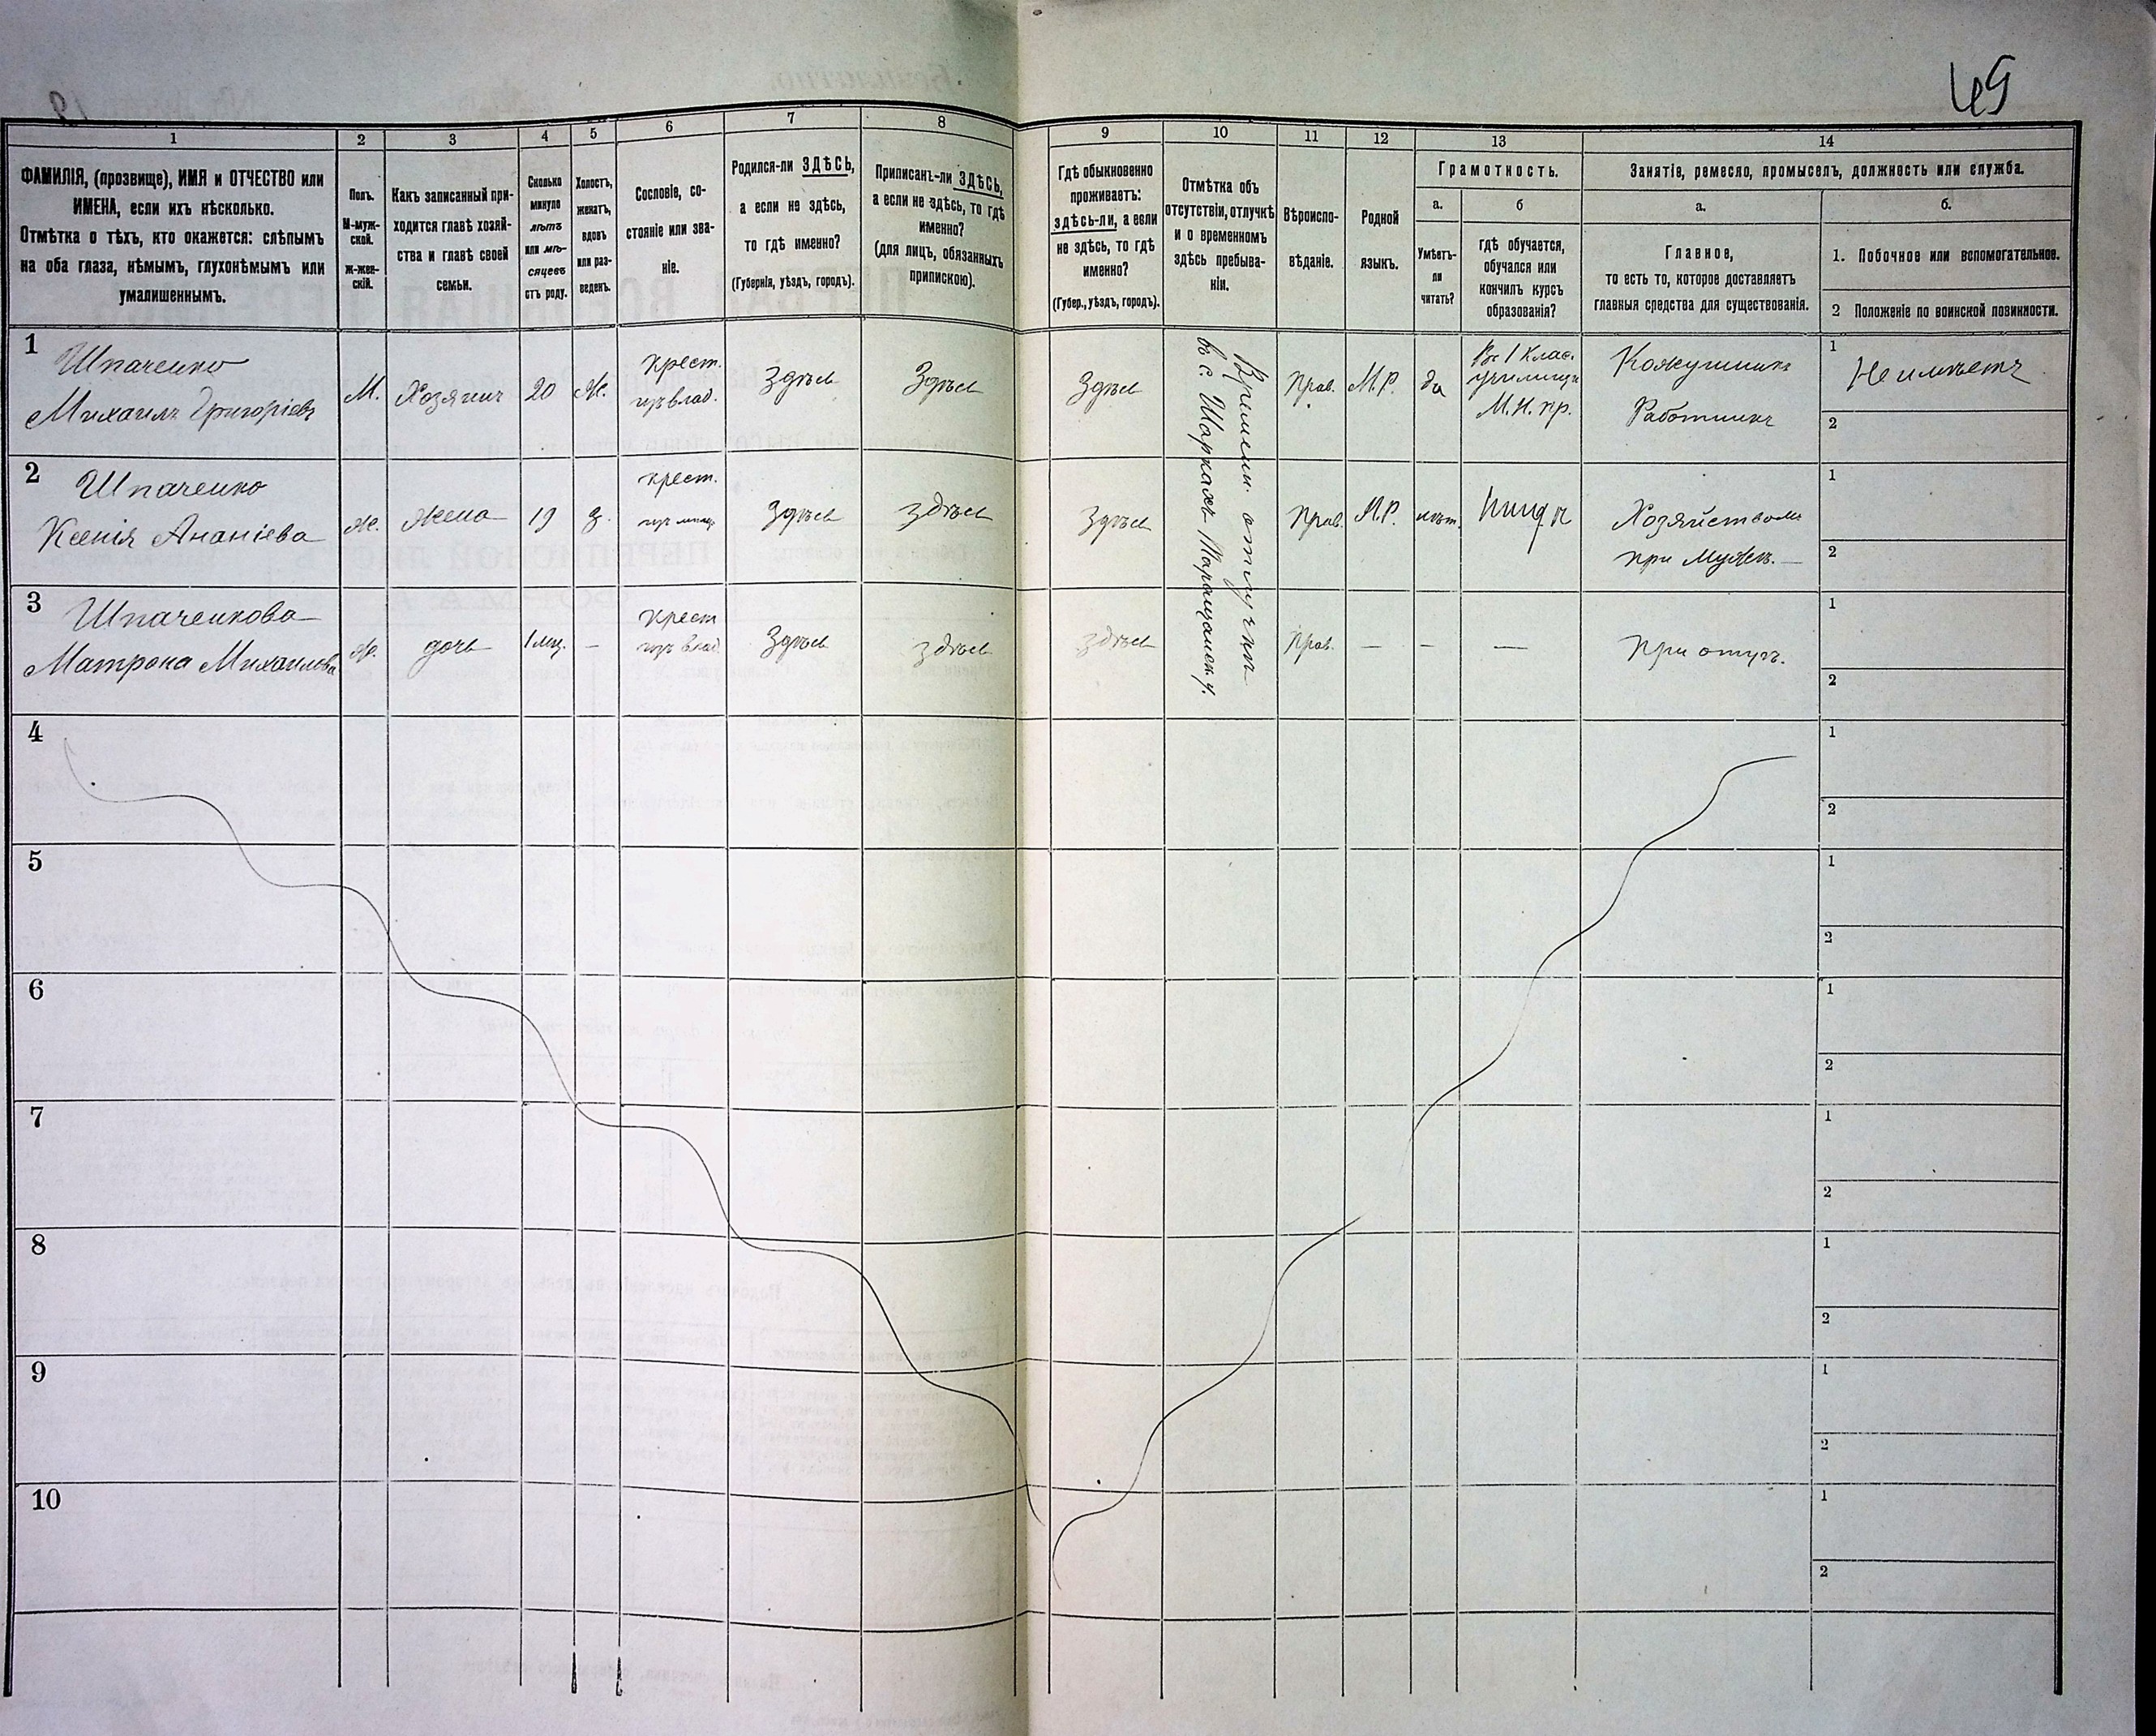 49
1
2
3
4
5
6
7
8
9
10
11
12
13
14
ФАМИЛІЯ, (прозвище), ИМЯ и ОТЧЕСТВО или
ИМЕНА, если ихъ нѣсколько.
Отмѣтка о тѣхъ, кто окажется: слѣпымъ
на оба глаза, нѣмымъ, глухонѣмымъ или
умалишеннымъ.
Полъ.
М-муж-
ской.
ж-жен-
скій.
Какъ записанный при-
ходится главѣ хозяй-
ства и главѣ своей
семьи.
Сколько
минуло
лѣтъ
или мѣ-
сяцевъ
отъ роду.
Холостъ,
женатъ,
вдовъ
или раз-
веденъ.
Сословіе, со-
стояніе или зва-
ніе.
Родился-ли ЗДѢСЬ,
а если не здѣсь,
то гдѣ именно?
(Губернія, уѣздъ, городъ).
Приписанъ-ли ЗДѢСЬ,
а если не здѣсь, то гдѣ
именно?
(для лицъ, обязанныхъ
припискою).
Гдѣ обыкновенно
проживаетъ:
здѣсь-ли, а если
не здѣсь, то гдѣ
именно?
(Губер., уѣздъ, городъ).
Отмѣтка объ
отсутствіи, отлучкѣ
и о временномъ
здѣсь пребыва-
ніи.
Вѣроиспо-
вѣданіе.
Родной
языкъ.
Грамотность.
а.
Умѣетъ-
ли
читать?
б
гдѣ обучается,
обучался или
кончилъ курсъ
образованія?
Занятіе, ремесло, промыселъ, должность или служба.
а.
Главное,
то есть то, которое доставляетъ
главныя средства для существованія.
б.
1. Побочное или вспомогательное.
2 Положеніе по воинской повинности.
1
Шпаченко
Михаилъ Григоріевъ
М.
Хозяинъ
20
Ж.
крест.
изъ влад.
Здѣсь
Здѣсь
Здѣсь
Времен. отлучки
въ с. Шаркахъ Таращанск. у.
Прав.
М.Р.
да
Въ 1 клас.
училищѣ
М. Н. пр.
Кожушникъ
Работникъ
1
Не имѣетъ
2
2
Шпаченко
Ксенія Ананіева
Ж.
Жена
19
З.
крест.
Здѣсь
здѣсь
Здѣсь
Прав.
М.Р.
нѣт.
Хозяйствомъ
при мужѣ. —
1
2
3
Шпаченкова
Матрона Михаилова
Ж.
дочь
1 мц.
—
крест
изъ влад.
Здѣсь
здѣсь
здѣсь
Прав.
—
—
—
При отцѣ.
1
2
4
1
2
5
1
2
6
1
2
7
1
2
8
1
2
9
1
2
10
1
2